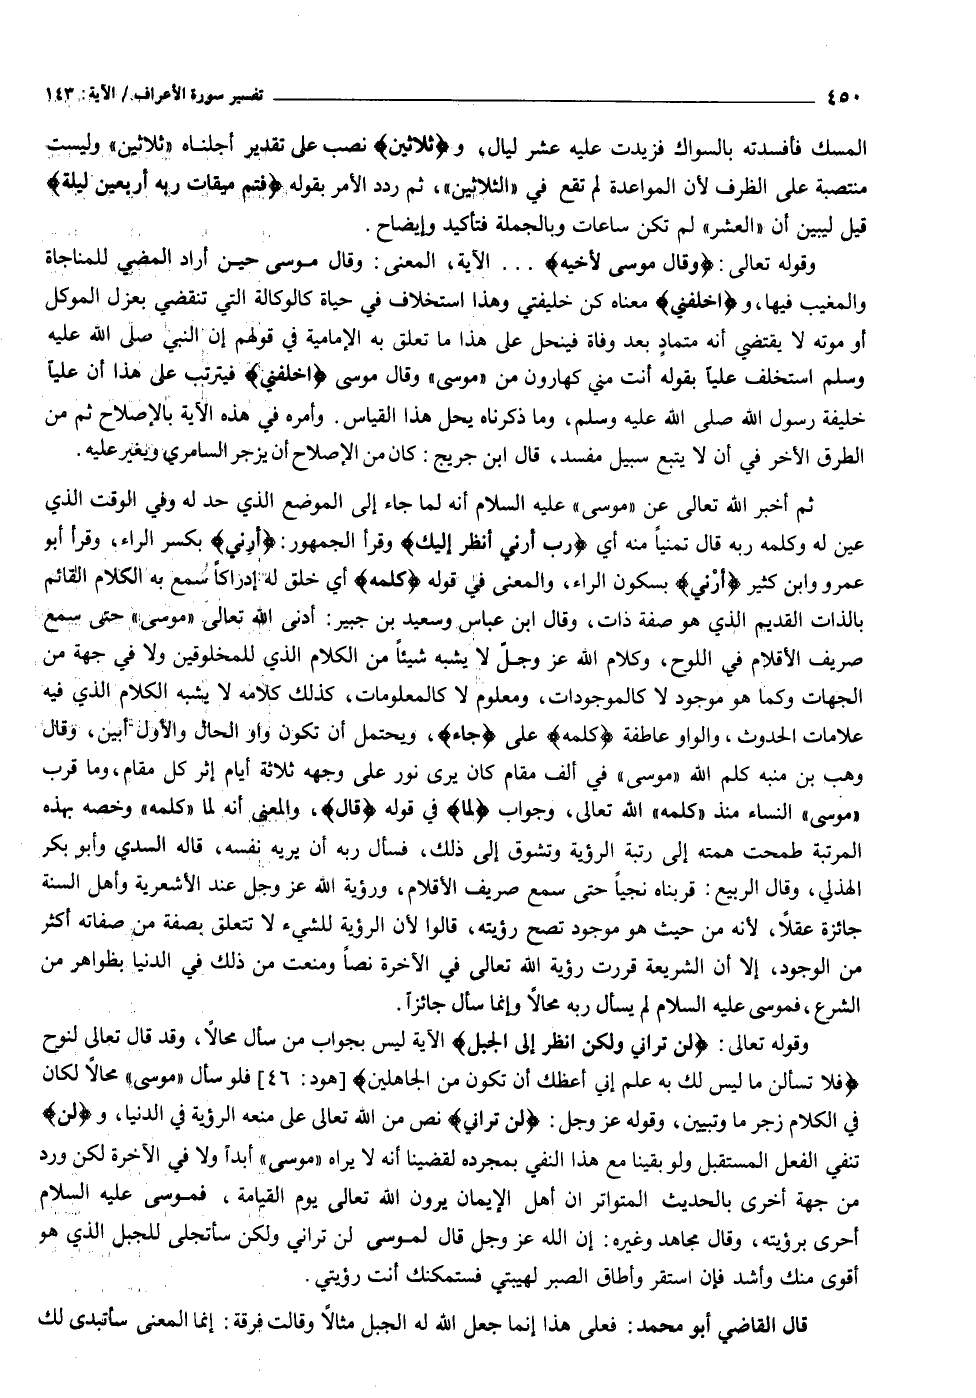 ٤٥٠ ــــــ تفسير سورة الأعراف / الآية: ١٤٣
المسك فأفسدته بالسواك فزيدت عليه عشر ليال، و ﴿ثلاثين﴾ نصب على تقدير أجلناه «ثلاثين» وليست
منتصبة على الظرف لأن المواعدة لم تقع في «الثلاثين»، ثم ردد الأمر بقوله ﴿فتم ميقات ربه أربعين ليلة﴾
قيل ليبين أن «العشر» لم تكن ساعات وبالجملة فتأكيد وإيضاح.
وقوله تعالى: ﴿وقال موسى لأخيه﴾ ... الآية، المعنى: وقال موسى حين أراد المضي للمناجاة
والمغيب فيها، و ﴿اخلفني﴾ معناه كن خليفتي وهذا استخلاف في حياة كالوكالة التي تنقضي بعزل الموكل
أو موته لا يقتضي أنه متمادٍ بعد وفاة فينحل على هذا ما تعلق به الإمامية في قولهم إن النبي صلى الله عليه
وسلم استخلف علياً بقوله أنت مني كهارون من «موسى» وقال موسى ﴿اخلفني﴾ فيترتب على هذا أن علياً
خليفة رسول الله صلى الله عليه وسلم، وما ذكرناه يحل هذا القياس. وأمره في هذه الآية بالإصلاح ثم من
الطرق الآخر في أن لا يتبع سبيل مفسد، قال ابن جريج: كان من الإصلاح أن يزجر السامري ويغير عليه.
ثم أخبر الله تعالى عن «موسى» عليه السلام أنه لما جاء إلى الموضع الذي حد له وفي الوقت الذي
عين له وكلمه ربه قال تمنياً منه أي ﴿رب أرني أنظر إليك﴾ وقرأ الجمهور: ﴿أرِني﴾ بكسر الراء، وقرأ أبو
عمرو وابن كثير ﴿أرْني﴾ بسكون الراء، والمعنى في قوله ﴿كلمه﴾ أي خلق له إدراكاً سُمع به الكلام القائم
بالذات القديم الذي هو صفة ذات، وقال ابن عباس وسعيد بن جبير: أدنى الله تعالى «موسى» حتى سمع
صريف الأقلام في اللوح، وكلام الله عز وجلّ لا يشبه شيئاً من الكلام الذي للمخلوقين ولا في جهة من
الجهات وكما هو موجود لا كالموجودات، ومعلوم لا كالمعلومات، كذلك كلامه لا يشبه الكلام الذي فيه
علامات الحدوث، والواو عاطفة ﴿كلمه﴾ على ﴿جاء﴾، ويحتمل أن تكون واو الحال والأول أبين، وقال
وهب بن منبه كلم الله «موسى» في ألف مقام كان يرى نور على وجهه ثلاثة أيام إثر كل مقام، وما قرب
«موسى» النساء منذ «كلمه» الله تعالى، وجواب ﴿لما﴾ في قوله ﴿قال﴾، والمعنى أنه لما «كلمه» وخصه بهذه
المرتبة طمحت همته إلى رتبة الرؤية وتشوق إلى ذلك، فسأل ربه أن يريه نفسه، قاله السدي وأبو بكر
الهذلي، وقال الربيع: قربناه نجياً حتى سمع صريف الأقلام، ورؤية الله عز وجل عند الأشعرية وأهل السنة
جائزة عقلاً، لأنه من حيث هو موجود تصح رؤيته، قالوا لأن الرؤية للشيء لا تتعلق بصفة من صفاته أكثر
من الوجود، إلا أن الشريعة قررت رؤية الله تعالى في الآخرة نصاً ومنعت من ذلك في الدنيا بظواهر من
الشرع، فموسى عليه السلام لم يسأل ربه محالاً وإنما سأل جائزاً.
وقوله تعالى: ﴿لن تراني ولكن انظر إلى الجبل﴾ الآية ليس بجواب من سأل محالاً، وقد قال تعالى لنوح
﴿فلا تسألن ما ليس لك به علم إني أعظك أن تكون من الجاهلين﴾ [هود: ٤٦] فلو سأل «موسى» محالاً لكان
في الكلام زجر ما وتبيين، وقوله عز وجل: ﴿لن تراني﴾ نص من الله تعالى على منعه الرؤية في الدنيا، و ﴿لن﴾
تنفي الفعل المستقبل ولو بقينا مع هذا النفي بمجرده لقضينا أنه لا يراه «موسى» أبداً ولا في الآخرة لكن ورد
من جهة أخرى بالحديث المتواتر ان أهل الإيمان يرون الله تعالى يوم القيامة، فموسى عليه السلام
أحرى برؤيته، وقال مجاهد وغيره: إن الله عز وجل قال لموسى لن تراني ولكن سأتجلى للجبل الذي هو
أقوى منك وأشد فإن استقر وأطاق الصبر لهيبتي فستمكنك أنت رؤيتي.
قال القاضي أبو محمد: فعلى هذا إنما جعل الله له الجبل مثالاً وقالت فرقة: إنما المعنى سأتبدى لك